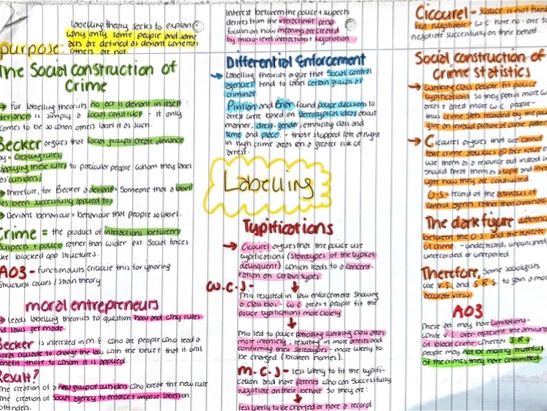 labelling theory seeks to explain
why only some people and some
acts are defined as deviant
others are not.
purpose:
The Social Construction of
Crime
→ For labelling theorists no act is deviant in itself
deviance is simply a social construct - it only
comes to be so when others label it as such.
Becker argues that social groups create deviance
by - creating rules
applying these rules to particular people whom they label
as outsiders
→ therefore, for Becker a deviant = someone that a label
has been successfully applied to
→ Deviant behaviour = behaviour that people so label.
Crime = the product of interactions between
suspects + police rather than wider ext social forces
like blocked opp structures.
AO3 - functionalists critique this for ignoring
structural causes / strain theory
moral entrepreneurs
→ Leads labelling theorists to question how and why rules
and laws get made.
Becker is interested in M.E who are people who lead a
moral crusade to change the law with the belief that it will
benefit those to whom it is applied
Result?
The creation of a new group of outsiders who break the new rule
The creation of a social agency to enforce + impose labels on
interest between the police + suspects
derives from the interactionist persp
focus on how meanings are created
by micro level interactions + negotiation
Differential Enforcement
Labelling theorists argue that social control
agencies tend to label certain groups as
criminal
Piliavin and Briar found police decisions to
arrest were based on stereotypical ideas about
manner, dress, gender, ethnicity, class and
time and place - those stopped late at night
in high crime areas on a greater risk of
arrest.
Labelling
Typifications
→ Cicourel argues that the police use
typifications (stereotypes of the typical
delinquent) which leads to a concen-
tration on certain types
W.C.J -
This resulted in law enforcement showing
a class bias - W.C areas + people fit the
police typifications more closely
This led to police patrolling working class areas
more intensively, resulting in more arrests and
confirming their stereotypes - more likely to
be charged (broken homes).
M.C.J - less likely to fit the typifi-
cation and have parents who can successfully
negotiate on their behalf. So they are:
less likely to be charged or have a record
Cicourel - justice is not fixed
but negotiable
negotiate successfully on their behalf.
Social construction of
Crime Statistics
→ Working class people fit the police
typifications so they patrol more W.C
areas + arrest more W.C people -
thus crime stats recorded by the police
give an invalid picture of crime patterns
→ Cicourel argues that we cannot
use them as a resource but instead we
should treat them as a topic and
The dark figure
between the O.S
of crime - undetected, unpunished
unrecorded or unreported.
Therefore, some sociologists
use V.S. and S.R.S. to gain a more
accurate view
AO3
These all may have limitations -
while
of
people may not be totally truthful
of the crimes they have committed.